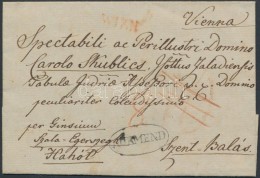 Vienna
WIEN
Spectabili ac Perillustri Domino
Carolo Skublics, Ittus Zaladiensis
Tabulæ Judriæ Assessori P. C. Domino
peculiariter Colendissimo
per Ginsium
Szala-Egerszeg
Hahót
KÖRMEND
Szent. Balás.